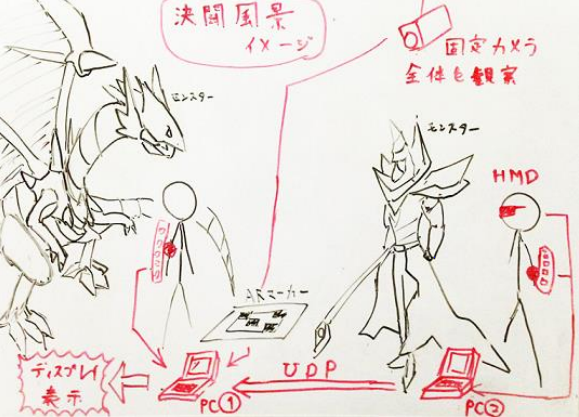 決闘風景
イメージ
固定カメラ
全体を観察
モンスター
モンスター
HMD
ARマーカー
UDP
ディスプレイ
表示
PC①
PC②